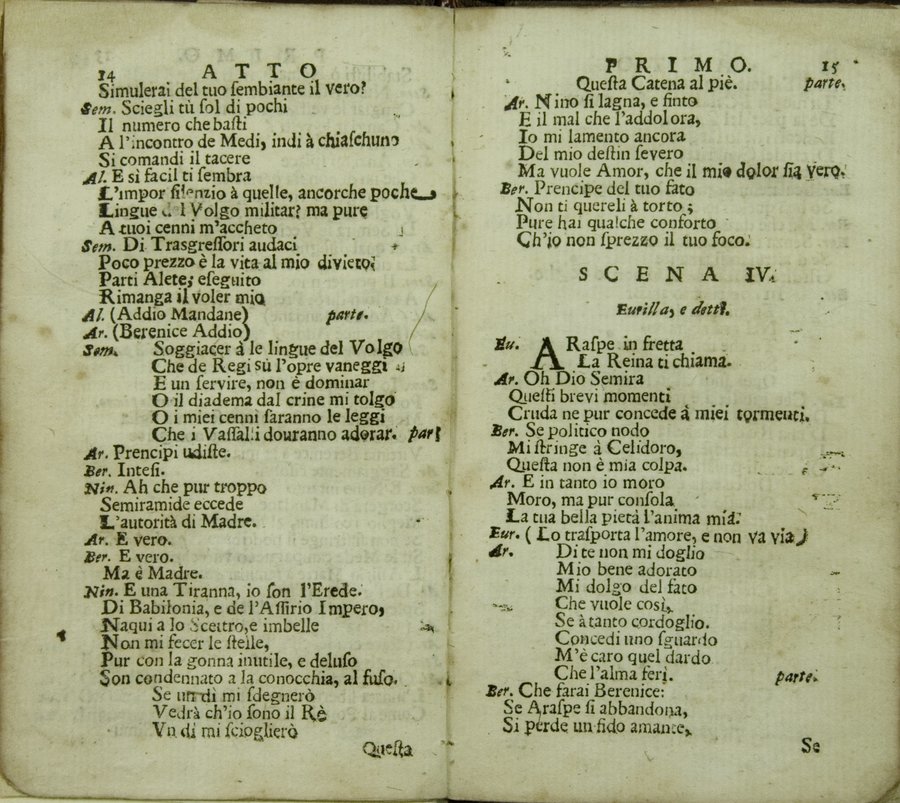 14 ATTO
Simulerai del tuo ſembiante il vero?
Sem. Sciegli tù ſol di pochi
Il numero che baſti
A l'incontro de Medi, indi à chiaſchuno
Si comandi il tacere
Al. E sì facil ti ſembra
L'impor ſilenzio à quelle, ancorche poche
Lingue del Volgo militar? ma pure
A tuoi cenni m'accheto
Sem. Di Trasgreſſori audaci
Poco prezzo è la vita al mio divieto;
Parti Alete; eſeguito
Rimanga il voler mio
Al. (Addio Mandane) parte.
Ar. (Berenice Addio)
Sem. Soggiacer à le lingue del Volgo
Che de Regi sù l'opre vaneggi
E un ſervire, non è dominar
O il diadema dal crine mi tolgo
O i miei cenni ſaranno le leggi
Che i Vaſſalli douranno adorar. part
Ar. Prencipi udiſte.
Ber. Inteſi.
Nin. Ah che pur troppo
Semiramide eccede
L'autorità di Madre.
Ar. E vero.
Ber. E vero.
Ma è Madre.
Nin. E una Tiranna, io ſon l'Erede.
Di Babilonia, e de l'Aſſirio Impero,
Naqui a lo Scettro, e imbelle
Non mi fecer le ſtelle,
Pur con la gonna inutile, e deluſo
Son condennato a la conocchia, al fuſo.
Se un dì mi ſdegnerò
Vedrà ch'io ſono il Rè
Vn dì mi ſcioglierò
Queſta
PRIMO. 15
Queſta Catena al piè. parte.
Ar. Nino ſi lagna, e finto
E il mal che l'addolora,
Io mi lamento ancora
Del mio deſtin ſevero
Ma vuole Amor, che il mio dolor ſia vero.
Ber. Prencipe del tuo fato
Non ti quereli à torto;
Pure hai qualche conforto
Ch'io non ſprezzo il tuo foco.
SCENA IV.
Eurilla, e detti.
Eu. ARaſpe in fretta
La Reina ti chiama.
Ar. Oh Dio Semira
Queſti brevi momenti
Cruda ne pur concede à miei tormenti.
Ber. Se politico nodo
Mi ſtringe à Celidoro,
Queſta non è mia colpa.
Ar. E in tanto io moro
Moro, ma pur conſola
La tua bella pietà l'anima mia.
Eur. (Lo traſporta l'amore, e non va via)
Ar. Di te non mi doglio
Mio bene adorato
Mi dolgo del fato
Che vuole così,
Se à tanto cordoglio.
Concedi uno ſguardo
M'è caro quel dardo
Che l'alma ferì. parte.
Ber. Che farai Berenice:
Se Araſpe ſi abbandona,
Si perde un fido amante,
Se